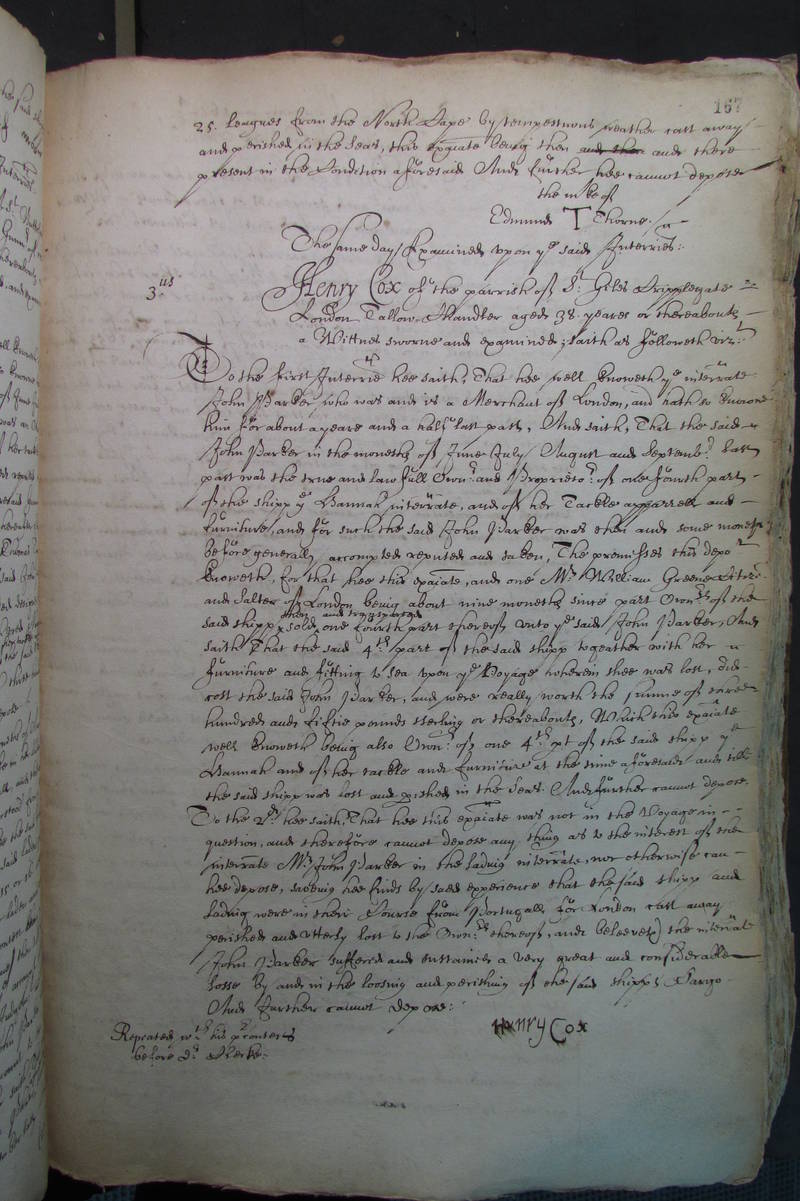 167
25. leagues from the North Cape by tempestuous weather cast away
and perished in the Seas, this exaiate being then and there and there
present in the Condition aforesaid And further hee cannot depose
the mke of
Edmund T Thorne.
The same day / Examined upon ye said Interries:
3us
Henry Cox of the parrish of St. Giles Cripplegate
London Tallow Chandler aged 38 yeares or thereabouts
a Wittnes sworne and examined saith as followeth vizt:
To the first Interrie hee saith, That hee well knoweth ye interrate
John Parker who was and is a Merchant of London, and hath so knowne
him for about a yeare and a halfe last past, And saith, That the said
John Parker in the moneths of June July August and Septembr. last
past was the true and lawfull Ownr. and Proprietor. of one fourth part
of the shipp ye Hannah interrate, and of her Tackle apparrell and
furniture, and for such the said John Parker was then and some moneths
before generally accompted reputed and taken, The premisses this depot
knoweth, for that hee this exaiate, and one Mr. William Greene Citizen
and Salter of London being about nine moneths since part Ownrs of the
then and transported
said shipp, sold one fourth part thereof unto ye said John Parker, And
saith That the said 4th part of the said shipp togeather with her
furniture and fitting to Sea upon ye Voyage wherein shee was lost, did
cost the said John Parker, and were really worth the summe of three
hundred and fiftie pounds sterling or thereabouts, Which this exaiate
well knoweth being also Ownr. of one 4th pt of the said shipp ye
Hannah and of her tackle and furniture at the time aforesaid and till
the said shipp was lost and pished in the Seas. And further cannot depose.
To the 2d. hee saith, That hee this exaiate was not in the Voyage in
question, and therefore cannot depose any thing as to the interest of the
interrate Mr. John Parker in the lading interrate, nor otherwise can
hee depose, saveing hee finds by saed experience that the said shipp and
lading were in their Course from Portugall for London cast away
perished and utterly lost to the Ownrs thereof, and beleeveth the interrate
John Parker suffered and sustained a very great and considerable
losse by and in the loosing and perishing of the said shipps Cargo
And further cannot depose:
Repeated wth his pcontests
before Dr. Clerke.
Henry Cox